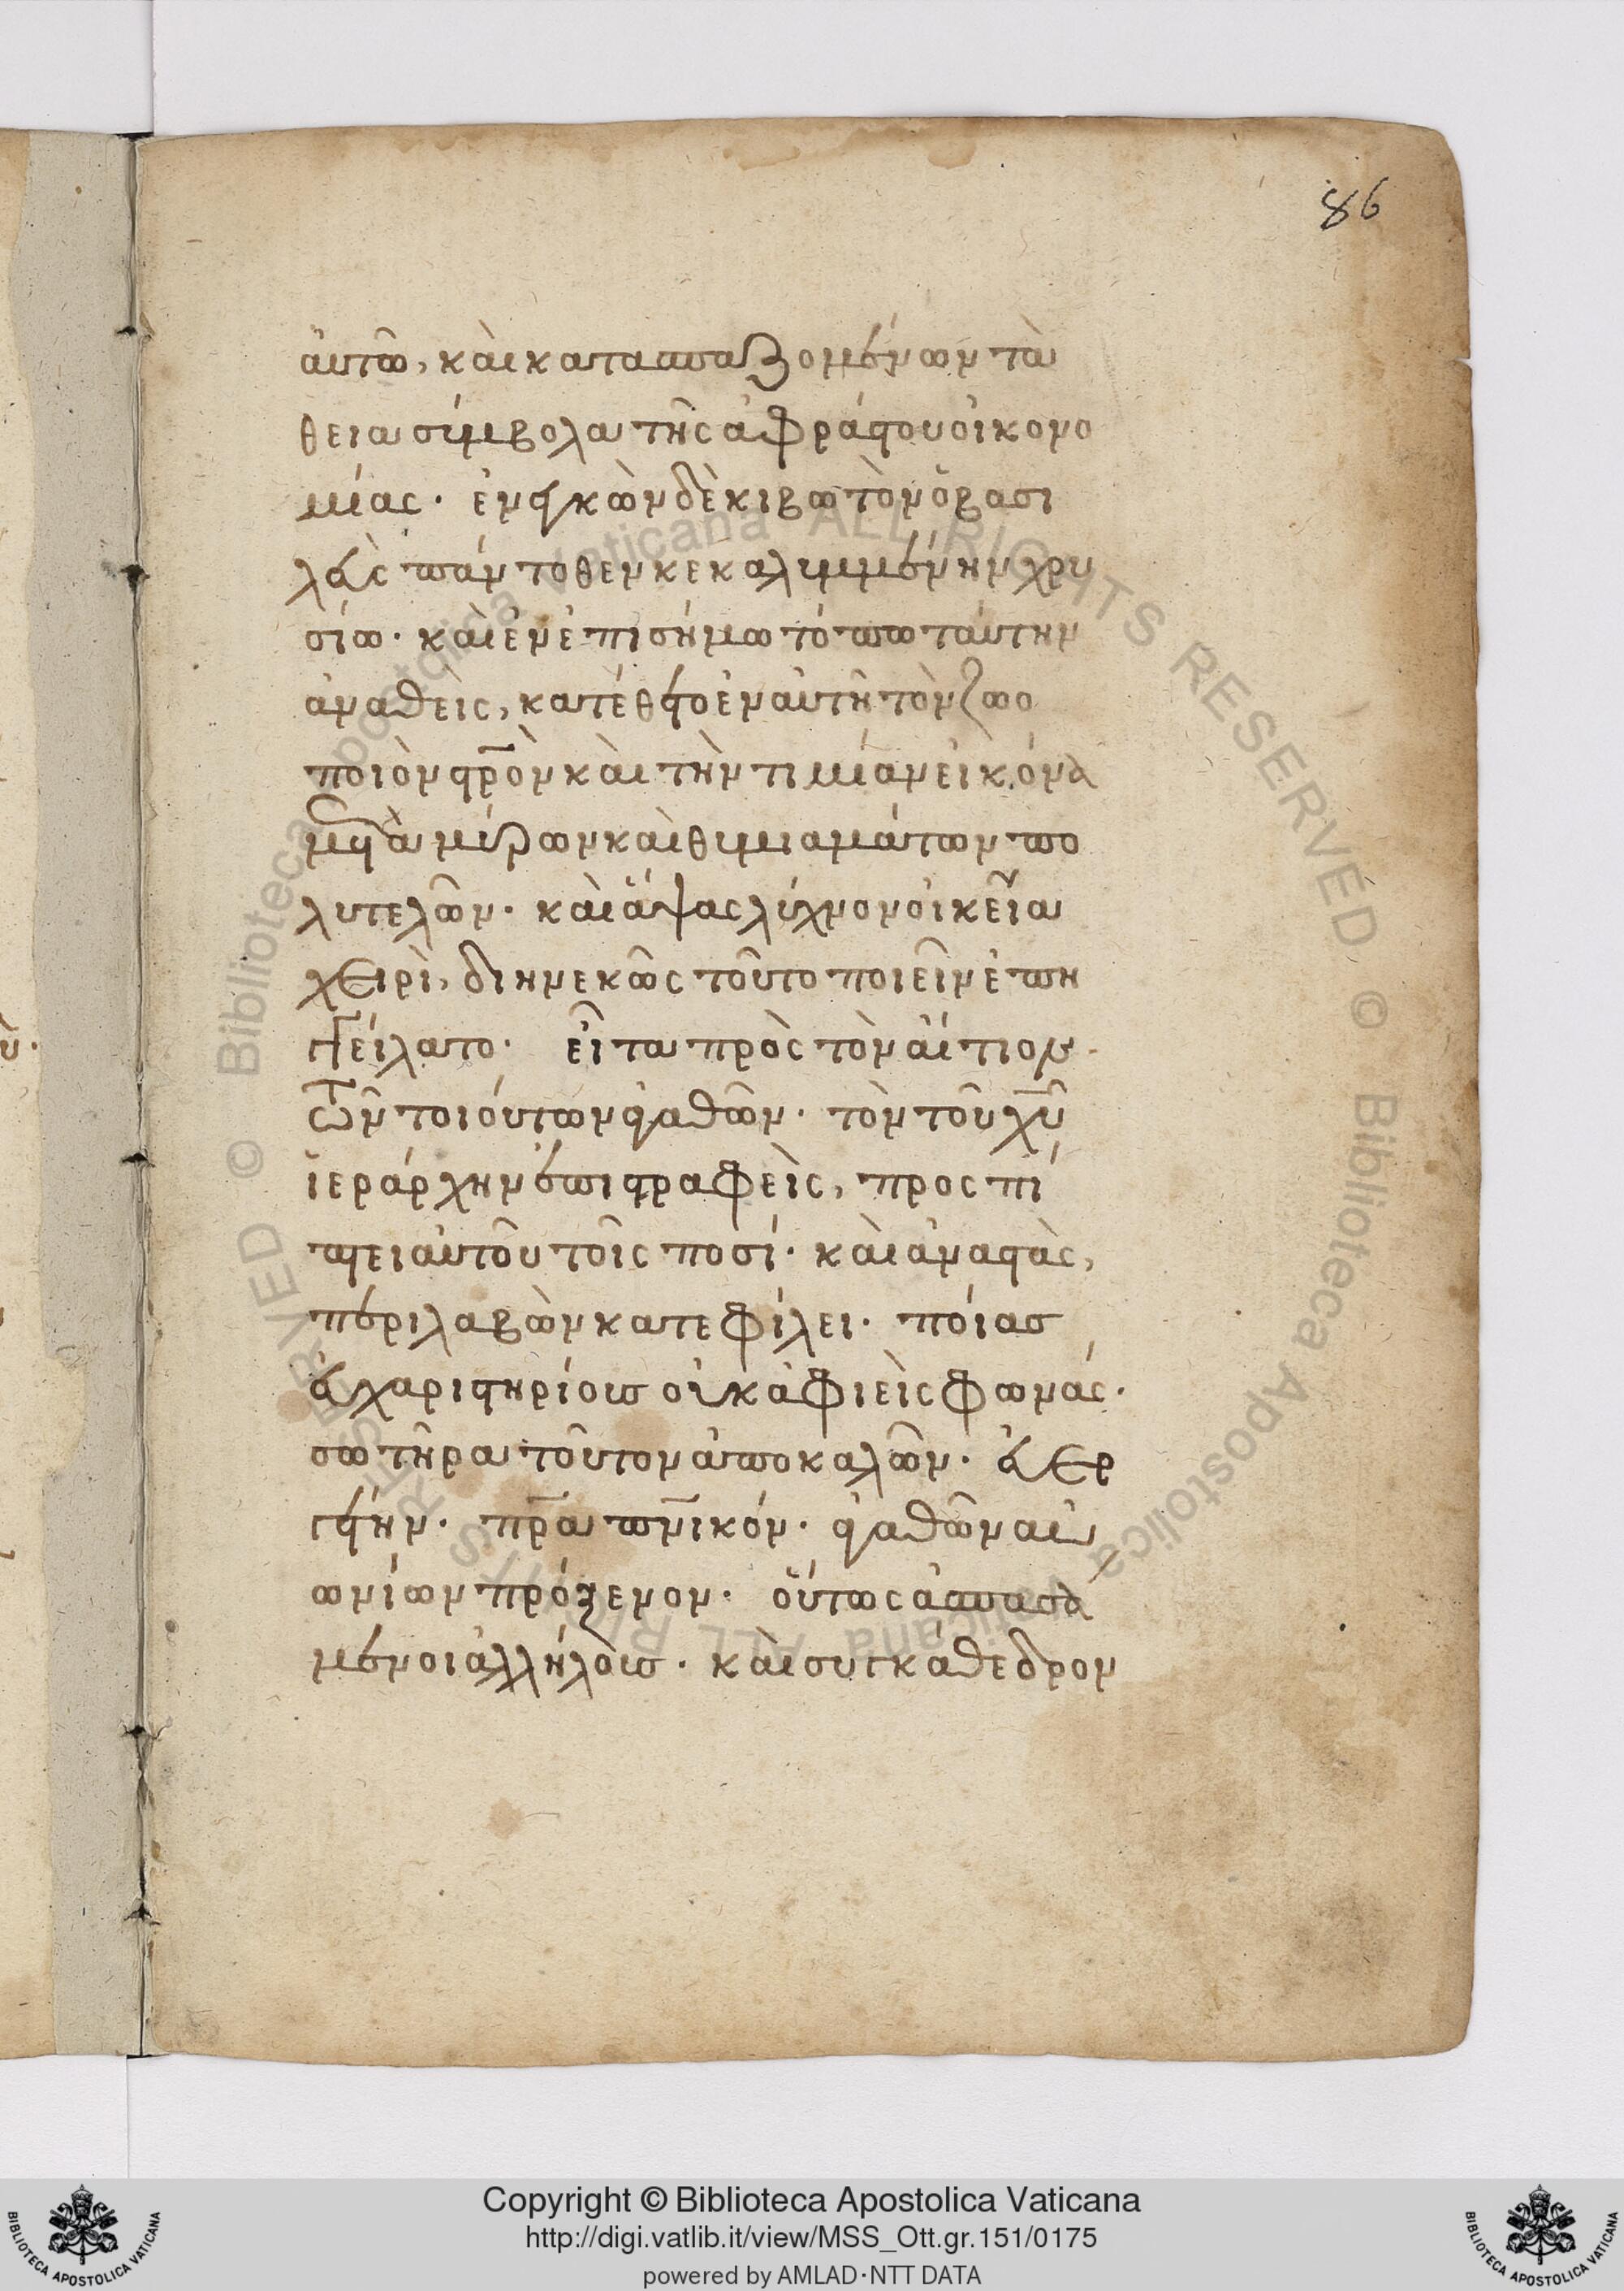 86
αὐτῶ, καὶ κατασπαζομένων τὰ
θεια σύμβολα τῆς ἀφράστου οἰκονο
μίας. ἐνεγκὼν δὲ κιβωτὸν ὁ βασι
λεὺς πάντοθεν κεκαλυμμένην χρυ
σίω. καὶ ἐν ἐπισήμω τόπω ταύτην
ἀναθεὶς, κατέθετο ἐν αὐτῆ τὸν ζωο
ποιὸν στρὸν καὶ τὴν τιμίαν εἰκόνα
μετὰ μύρων καὶ θυμιαμάτων πο
λυτελῶν. καὶ ἅψας λύχνον οἰκεῖα
χειρὶ, διηνεκῶς τοῦτο ποιεῖν ἐπη
γγείλατο. εἶτα πρὸς τὸν αἴτιον
τῶν τοιούτων ἀγαθῶν. τὸν τοῦ χυ
ἱεράρχην ἐπιστραφεὶς, προσπί
πτει αὐτοῦ τοῖς ποσί. καὶ ἀναστὰς,
περιλαβὼν κατεφίλει. ποίας
εὐχαριστηρίους οὐκ ἀφιεὶς φωνάς.
σωτῆρα τοῦτον ἀποκαλῶν. εὐερ
γέτην. πρα πνικόν. ἀγαθῶν αἰ
ωνίων πρόξενον. οὕτως ἀσπασά
μενοι ἀλλήλους. καὶ συγκάθεδρον
Copyright © Biblioteca Apostolica Vaticana
http://digi.vatlib.it/view/MSS_Ott.gr.151/0175
powered by AMLAD·NTT DATA
BIBLIOTECA APOSTOLICA VATICANA
BIBLIOTECA APOSTOLICA VATICANA